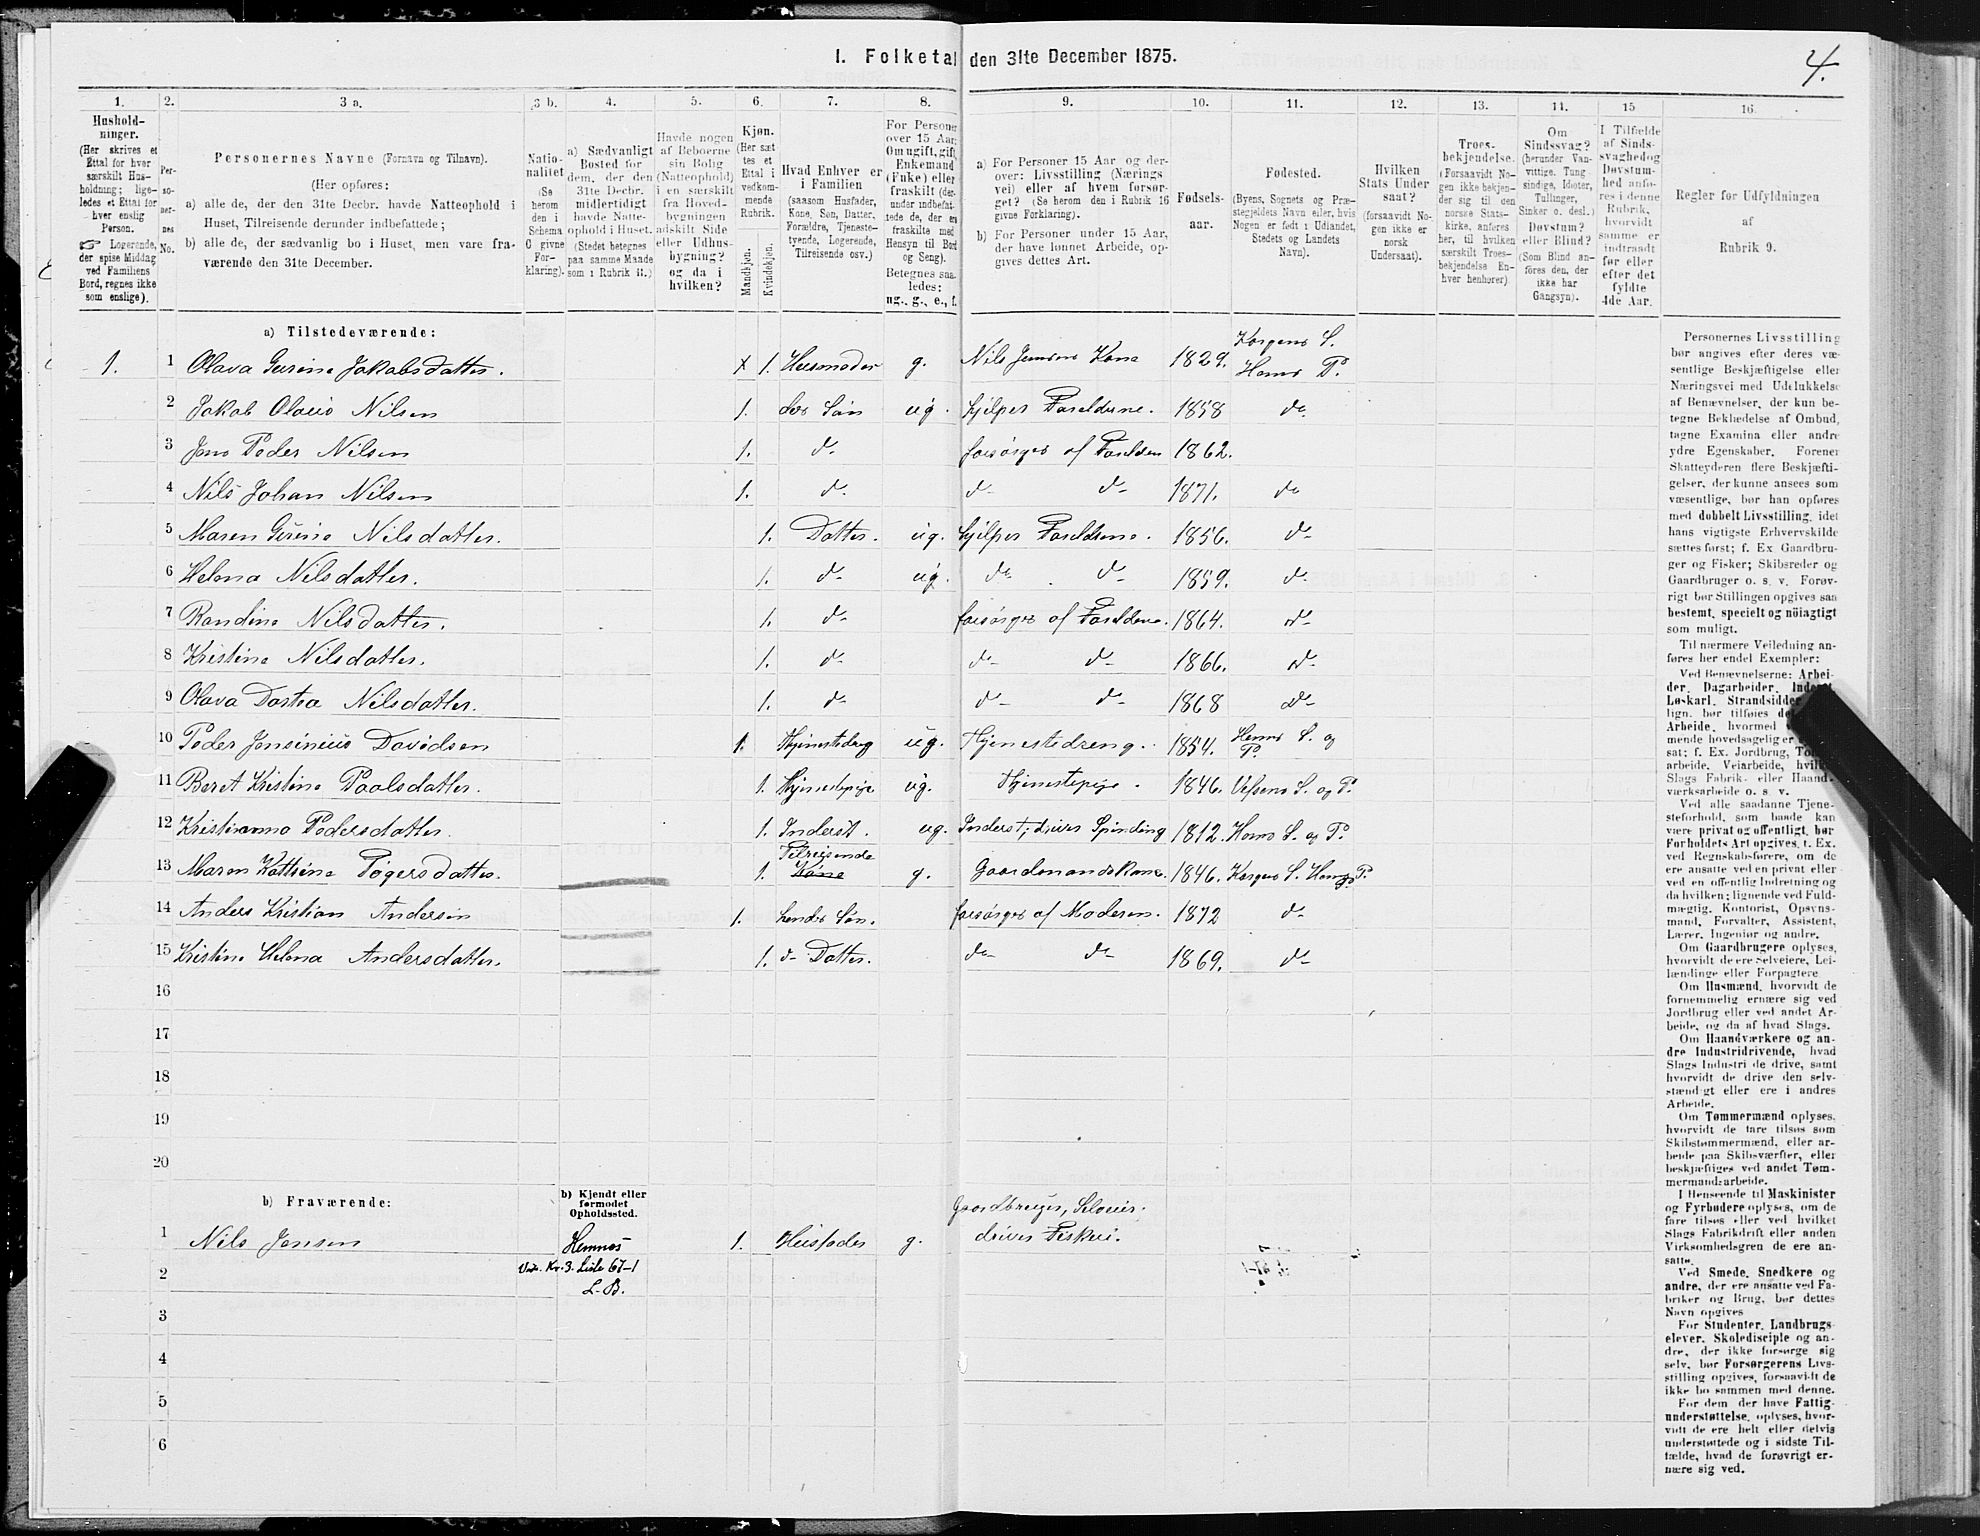 1. Folketal den 31te December 1875.
4.
1. 2. 3 a. 3 b. 4. 5. 6. 7. 8. 9. 10. 11. 12. 13. 14. 15 16.
Hushold-
ninger.
(Her skrives et
Ettal for hver
særskilt Hus-
holdning; lige-
ledes et Ettal for
hver enslig
Person.
☞ Logerende,
der spise Middag
ved Familiens
Bord, regnes ikke
som enslige).
Per-
so-
ner-
nes
No.
Personernes Navne (Fornavn og Tilnavn).
(Her opføres:
a) alle de, der den 31te Decbr. havde Natteophold i
Huset, Tilreisende derunder indbefattede;
b) alle de, der sædvanlig bo i Huset, men vare fra-
værende den 31te December.
Natio-
nalitet
(Se
herom
den i
Schema
C givne
For-
klaring).
a) Sædvanligt
Bosted for
dem, der den
31te Decbr.
midlertidigt
havde Natte-
ophold i Huset.
(Stedet betegnes
paa samme Maade
som i Rubrik 11.)
Havde nogen
af Beboerne
sin Bolig
(Natteophold)
i en særskilt
fra Hoved-
bygningen
adskilt Side
eller Udhus-
bygning?
og da i
hvilken?
Kjøn.
(Her sæt
tes et
Ettal i
vedkom-
mende
Rubrik.
Mandkjøn.
Kvindekjøn.
Hvad Enhver er
i Familien
(saasom Husfader,
Kone, Søn, Datter,
Forældre, Tjeneste-
tyende, Logerende,
Tilreisende osv.)
For Personer
over 15 Aar,
Om ugift, gift,
Enkemand
(Enke) eller
fraskilt (der-
under indbefat-
tede de, der ere
fraskilte med
Hensyn til Bord
og Seng).
Betegnes saa-
ledes:
ug., g., e., f.
a) For Personer 15 Aar og der-
over: Livsstilling (Nærings
vei) eller af hvem forsør-
get? (Se herom den i Rubrik 16
givne Forklaring).
b) For Personer under 15 Aar,
der have lønnet Arbeide, op-
gives dettes Art.
Fødsels-
aar.
Fødested.
(Byens, Sognets og Præ-
stegjeldets Navn eller, hvis
Nogen er født i Udlandet,
Stedets og Landets
Navn).
Hvilken
Stats Under
saat?
(forsaavidt No-
gen ikke er
norsk
Undersaat).
Troes-
bekjendelse.
(Forsaavidt No-
gen ikke bekjen-
der sig til den
norske Stats-
kirke, anføres
her, til hvilken
særskilt Troes-
bekjendelse En-
hver henhører).
Om
Sindssvag?
(herunder Van-
vittige, Tung-
sindige, Idioter,
Tullinger,
Sinker o. desl.)
Døvstum?
eller Blind?
(Som Blind an-
føres den, der
ikke har
Gangsyn).
I Tilfælde
af Sinds-
svaghed og
Døvstum-
hed anfø-
res i denne
Rubrik,
hvorvidt
samme er
indtraadt
før eller
efter det
fyldte
4de Aar.
Regler for Udfyldningen
af
Rubrik 9.
a) Tilstedeværende:
1. 1 Olava Gurine Jakobsdatter. x 1. Husmoder g. Nils Jensens Kone 1829. Korgens S. Hemnes P.
2 Jakob Olaus Nilsen 1. des Søn ug. hjelper Forældrene. 1858 do
3 Jens Peder Nilsen 1. d- forsørges af Forældren 1862.
4 Nils Johan Nilsen 1. d. d- d- 1871. do
5 Maren Gurine Nilsdatter. 1. Datter. ug. hjelper Forældrene. 1856. d-
6 Helena Nilsdatter. 1. d- ug. do d- 1859. d.
7 Randine Nilsdatter. 1. d- forsørges af Forældrene. 1864. d-
8 Kristine Nilsdatter. 1. d- d- d- 1866. d-
9 Olava Dortea Nilsdatter. 1. d- d- d- 1868 d-
10 Peder Jonsinius Davidsen 1. Thjenestedreng ug. Thjenestedreng. 1854. Hemnes S. og P.
11 Beret Kristine Paalsdatter. 1. Thjenestepige ug. Thjenestepige. 1846. Vefsens S. og P.
12 Kristianna Pedersdatter. 1. Inderst. ug. Inderst, driver Spinding 1812. Hemnes S. og P.
13 Maren Kattrine Pegersdatter. 1. Tilreisende Kone g. Gaardmandskone. 1846. Korgens S. Hemnes P.
14 Anders Kristian Andersen 1. hendes Søn. forsørges af Moderen. 1872 d-
15 Kristine Helena Andersdatter. 1. d- Datter. do do 1869. d-
16
17
18
19
20
b) Fraværende:
b) Kjendt eller
formodet
Opholdssted.
1 Nils Jensen Hemnes 1. Husfader g. Gaardbruger, Selveier. driver Fiskeri.
2 Kr. 3. Liste 67-1
L. B.
3
4
5
6
Personernes Livsstilling
bør angives efter deres væ-
sentlige Beskjæftigelse eller
Næringsvei med Udelukkelse
af Benævnelser, der kun be-
tegne Beklædelse af Ombud,
tagne Examina eller andre
ydre Egenskaber. Forener
Skatteyderen flere Beskjæfti-
gelser, der kunne ansees som
væsentlige, bør han opføres
med dobbelt Livsstilling, idet
hans vigtigste Erhvervskilde
sættes først; f. Ex Gaardbru-
ger og Fisker; Skibsreder og
Gaardbruger o. s. v. Forøv-
rigt bør Stillingen opgives saa
bestemt, specielt og nöiagtigt
som muligt.
Til nærmere Veiledning an-
føres her endel Exempler:
Ved Benævnelserne: Arbei-
der, Dagarbeider, Inderst,
Løskarl, Strandsidder
lign. bør tilføies
Arbeide, hvormed
mende hovedsagelig er
sat; f. Ex. Jordbrug,
arbeide, Veiarbeide,
Slags Fabrik- eller Haand-
værksarbeide o. s. v.
Ved alle saadanne Tjene-
steforhold, som baade kan
være privat og offentligt, bør
Forholdets Art opgives, t. Ex.
ved Regnskabsførere, om de
ere ansatte ved en privat eller
ved en offentlig Indretning og
da hvilken; lignende ved Fuld-
mægtig, Kontorist, Opsyns-
mand, Forvalter, Assistent,
Lærer, Ingeniør og andre.
Om Gaardbrugere oplyses,
hvorvidt de ere Selveiere, Lei-
lændinge eller Forpagtere.
Om Husmænd, hvorvidt de
fornemmelig ernære sig ved
Jordbrug eller ved andet Ar-
beide, og da af hvad Slags.
Om Haandværkere og an-
dre Industridrivende, hvad
Slags Industri de drive, samt
hvorvidt de drive den selv-
stændigt eller ere i andres
Arbeide.
Om Tømmermænd oplyses,
hvorvidt de fare tilsøs som
Skibstømmermænd, eller ar-
beide paa Skibsværfter, eller
beskjæftiges ved andet Tøm-
mermandsarbeide.
I Henseende til Maskinister
og Fyrbødere oplyses, om de
fare tilsøs eller ved hvilket
Slags Fabrikdrift eller anden
Virksomhedsgren de ere an-
satte.
Ved Smede, Snedkere og
andre, der ere ansatte ved Fa-
briker og Brug, bør dettes
Navn opgives
For Studenter, Landbrugs-
elever, Skoledisciple og an-
dre, der ikke forsørge sig
selv, bør Forsørgerens Livs-
stilling opgives, forsaavidt de
ikke bo sammen med denne.
For dem der have Fattig-
understøttelse, oplyses, hvor-
vidt de ere helt eller delvis
understøttede og i sidste Til-
fælde, hvad de forøvrigt er-
nære sig ved.